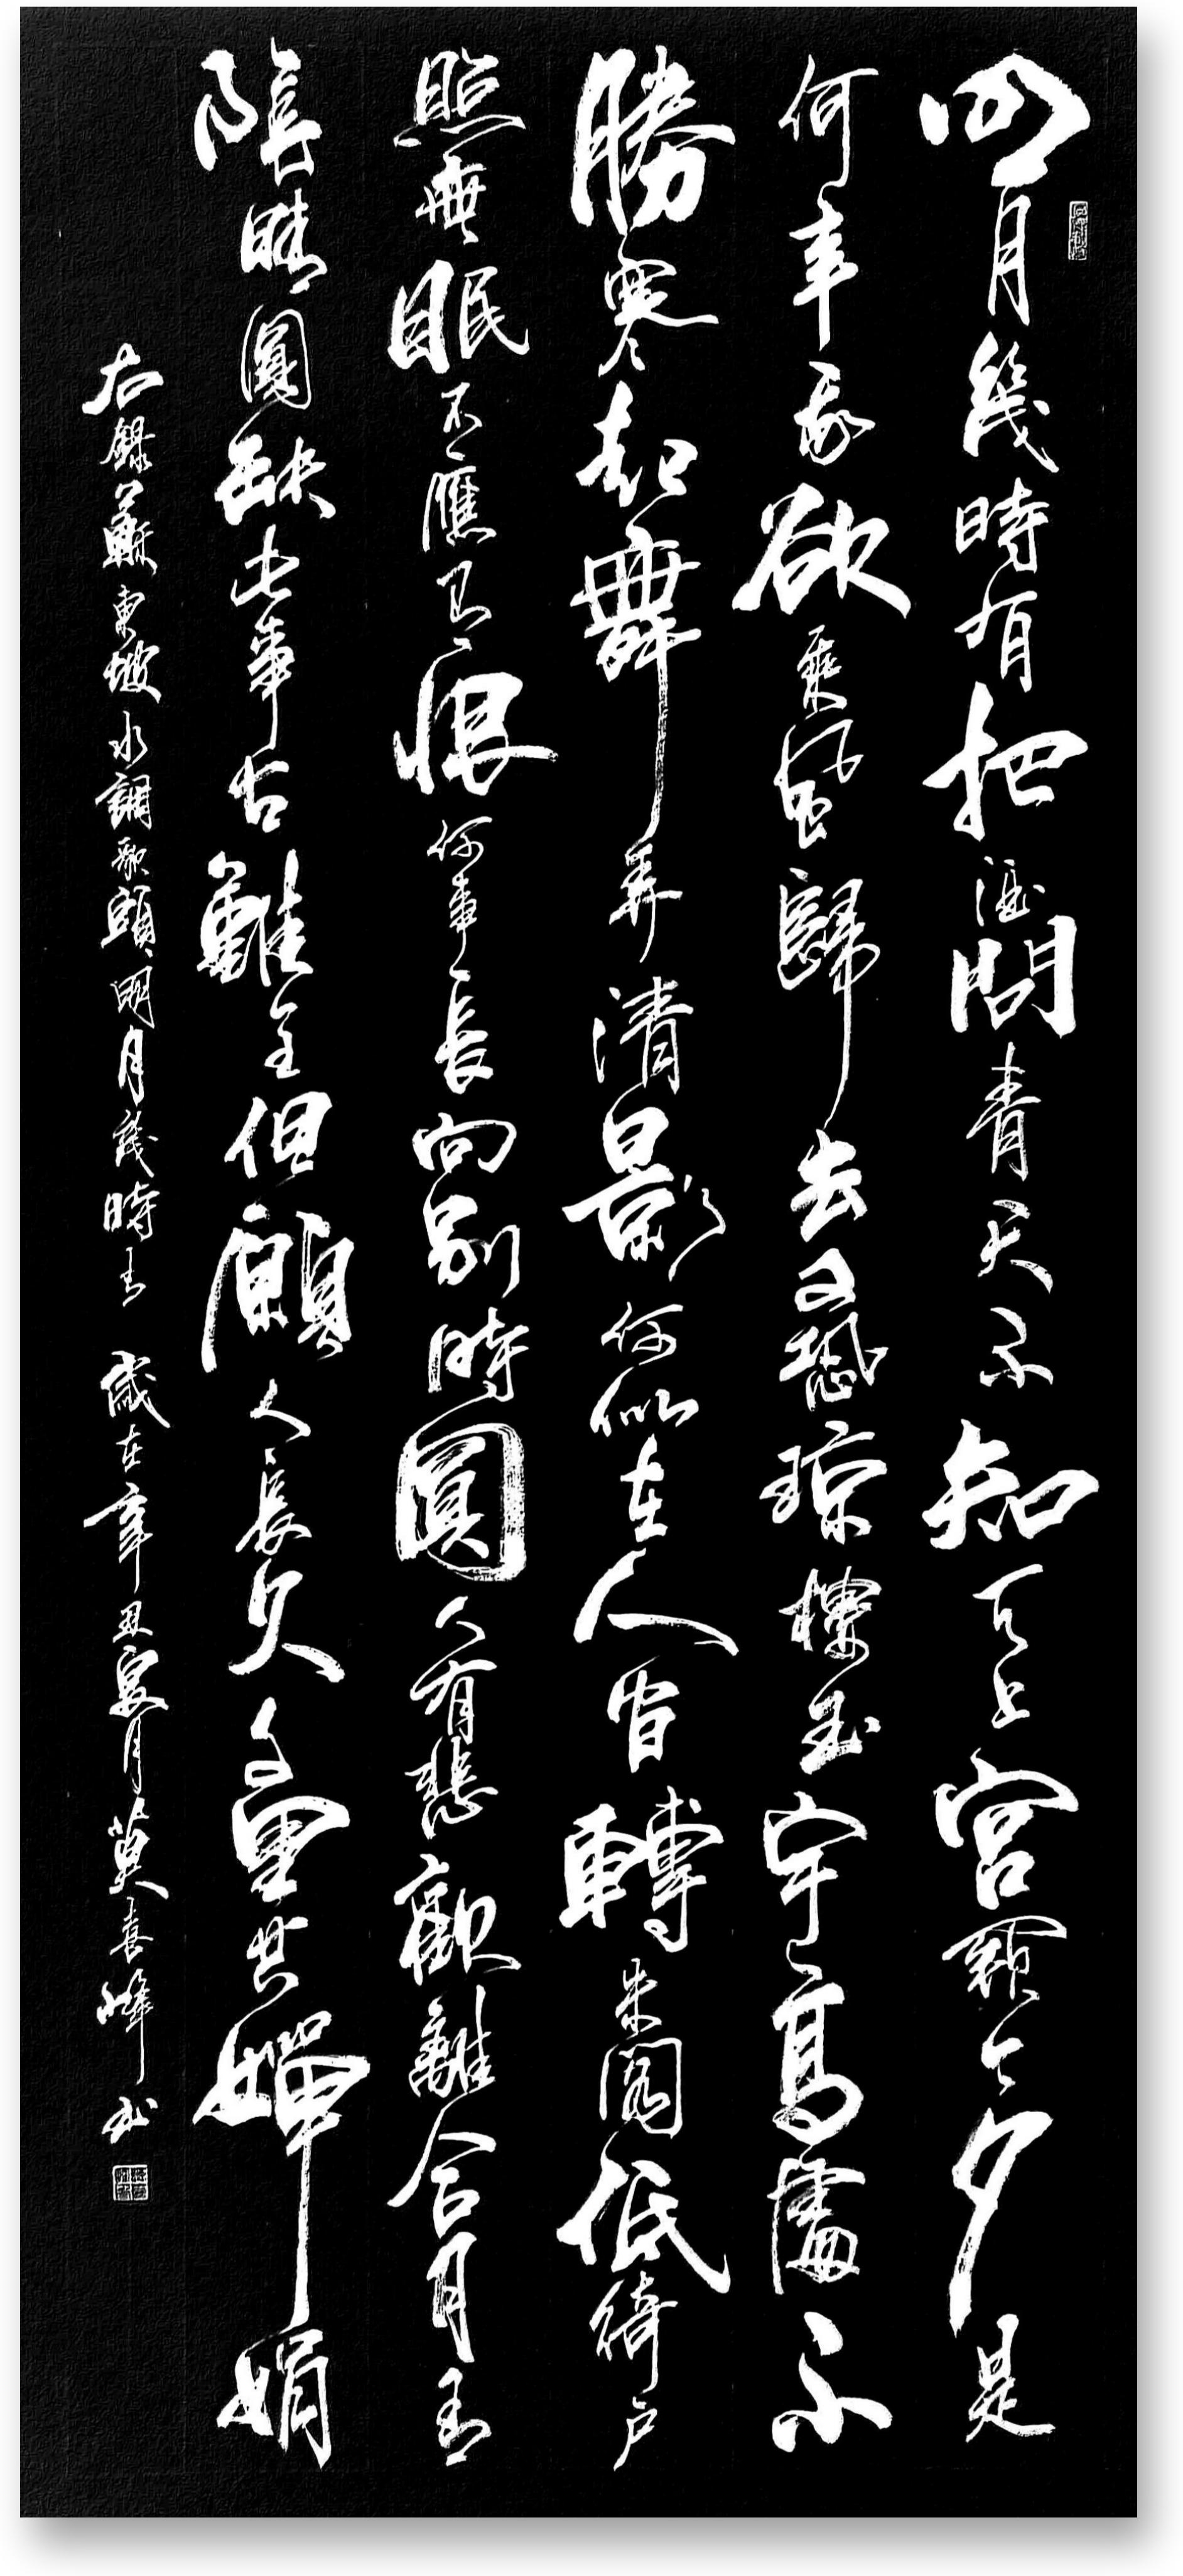 明月幾時有把酒問青天不知天上宮闕今夕是
何年我欲乘風歸去又恐琼樓玉宇高處不
勝寒起舞弄清影何似在人間轉朱閣低綺戶
照無眠不應有恨何事長向別時圓人有悲歡離合月有
陰晴圓缺此事古難全但願人長久千里共嬋娟
右錄蘇東坡水調歌頭明月幾時有 歲在辛丑夏月莫喜峰書